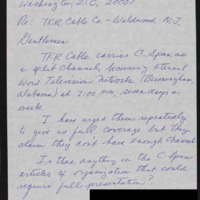 Washington, D.C. 20001
Re: TKR Cable Co - Wildwood, N.J.
Gentlemen
TKR Cable carries C-Span as
a split channel, becoming Eternal
Word Television Network (Birmingham,
Alabama) at 7:00 pm, seven days a
week.
I have urged them repeatedly
to give us full coverage but they
claim they don't have enough channels
Is there anything in the C-Span
articles of organization that could
require full presentation?